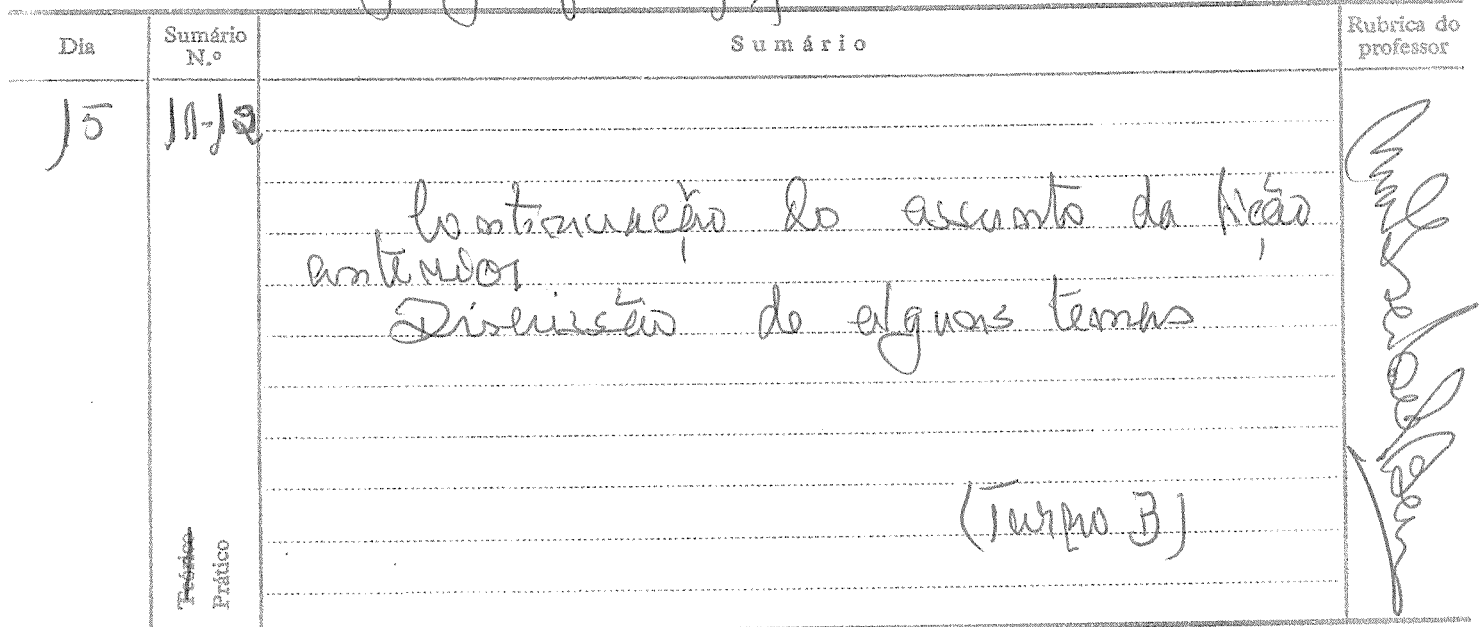 Dia
Sumário N.º
Sumário
Rubrica do professor
15
11-12
Continuação do assunto da lição
anterior
Discussão de alguns temas
(Turno B)
Teórico
Prático